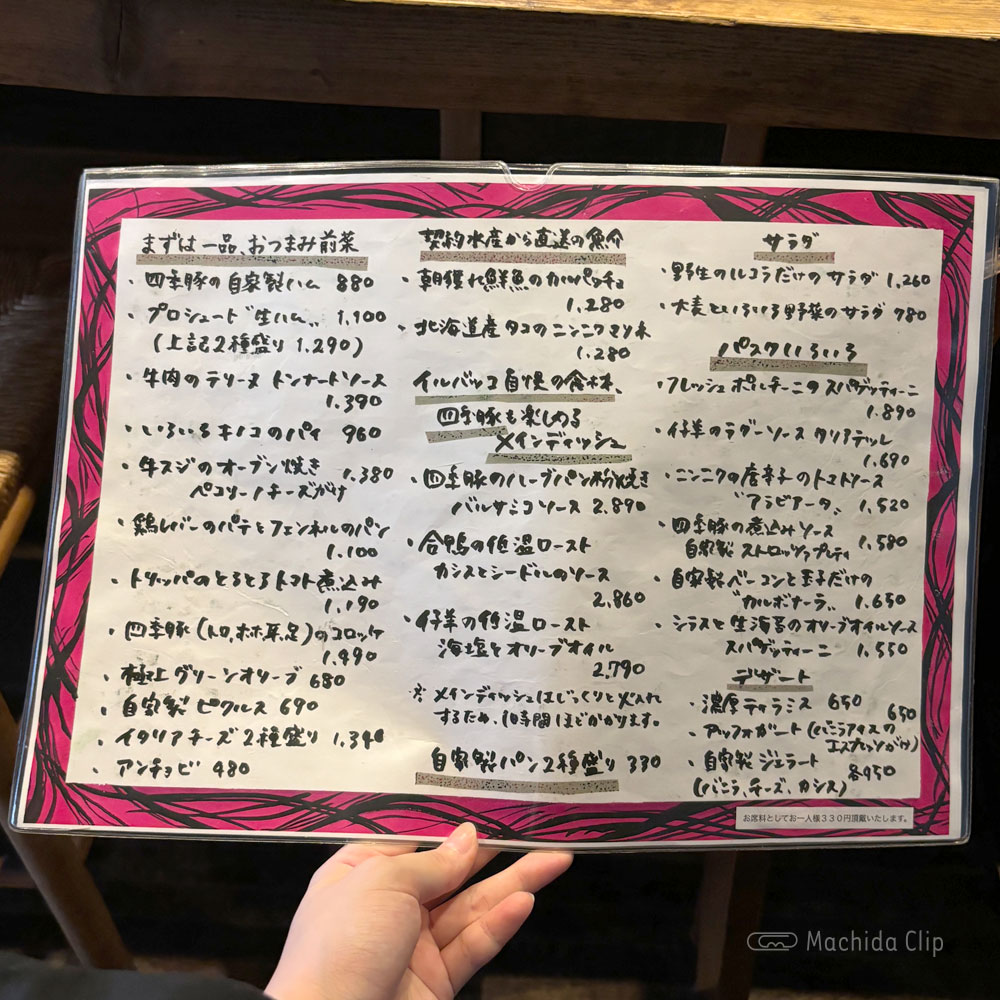 まずは一品、おつまみ前菜
・四季豚の自家製ハム 880
・プロシュート"生ハム" 1.100
(上記2種盛り 1.290)
・牛肉のテリーヌ トンナートソース
1.390
・いろいろキノコのパイ 960
・牛スジのオーブン焼き 1.380
ペコリーノチーズがけ
・鶏レバーのパテとフェンネルのパン
1.100
・トリッパのとろとろトマト煮込み
1.190
・四季豚(トロ,ホホ,耳,足)のコロッケ
1.490
・極上グリーンオリーブ 680
・自家製ピクルス 690
・イタリアチーズ2種盛り
・アンチョビ 480
契約水産から直送の魚介
・朝獲れ鮮魚のカルパッチョ
1.280
・北海道産タコのニンニクマリネ
1.280
イルバッコ自慢の食材、
四季豚も楽しめる
メインディッシュ
・四季豚のハーブパン粉焼き
バルサミコソース 2.890
・合鴨の低温ロースト
カシスとシードルのソース
2.860
・仔羊の低温ロースト
海塩とオリーブオイル
2.790
※メインディッシュはじっくりと火入れ
するため、1時間ほどかかります。
自家製パン2種盛り 330
サラダ
・野生のルコラだけのサラダ 1.260
・大麦といろいろ野菜のサラダ 980
パスタいろいろ
・フレッシュポルチーニのスパゲッティーニ
1.890
・仔羊のラグーソース タリアテッレ
1.690
・ニンニクの唐辛子のトマトソース
"アラビアータ" 1.520
・四季豚の煮込みソース
自家製 ストロッツァプレティ 1.580
・自家製ベーコンと玉子だけの
"カルボナーラ" 1.650
・シラスと生海苔のオリーブオイルソース
スパゲッティーニ 1.550
デザート
・濃厚ティラミス 650
・アッフォガート(バニラアイスの 650
エスプレッソがけ)
・自家製ジェラート 各450
(バニラ、チーズ、カシス)
お席料としてお一人様330円頂戴いたします。
Machida Clip